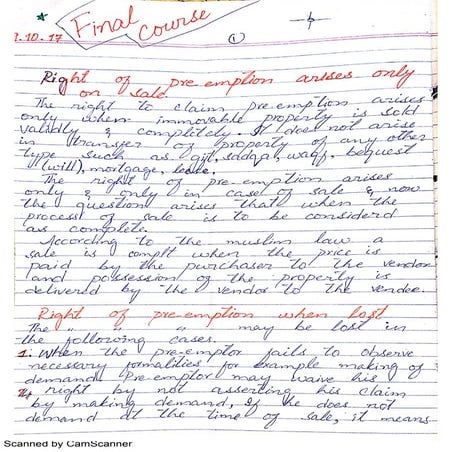 Final Course
1.10.17
1
Right of pre-emption arises only
on sale
The right to claim pre-emption arises
only when immovable property is sold
validly & completely. It does not arise
in transfer of property of any other
type such as gift, sadqa, waqf, bequest
(will), mortgage, lease.
The right of pre-emption arises
only & only in case of sale & now
the question arises that when the
process of sale is to be considerd
as complete.
According to the muslim law a
sale is complt when the price is
paid by the purchaser to the vendor
and possession of the property is
delivered by the vendor to the vendee.
Right of pre-emption when lost
The " " " may be lost in
the following cases.
1. When the pre-emptor fails to observe
necessary formalities for example making of
demand pre-emptor may waive his
right by not asserting his claim
by making demand, If he does not
demand at the time of sale, it means
Scanned by CamScanner